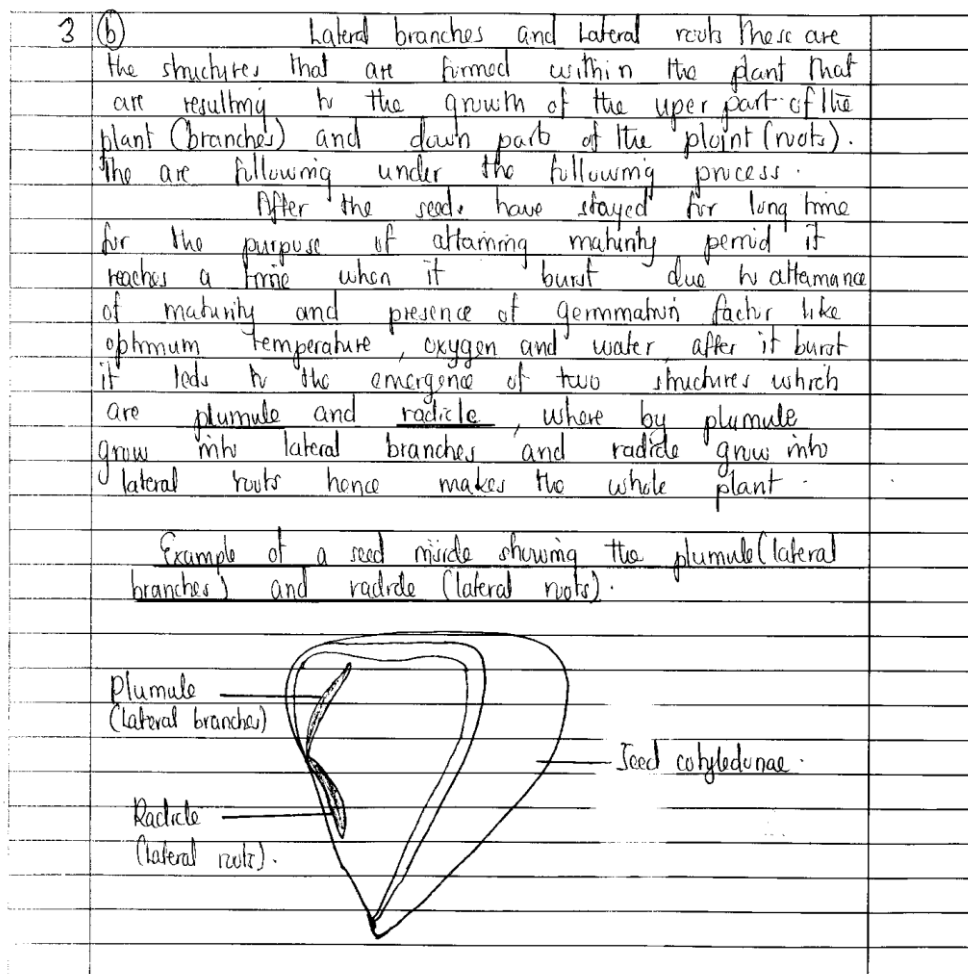 3 (b) Lateral branches and Lateral roots These are
the structures that are formed within the plant that
are resulting to the growth of the uper part of the
plant (branches) and down part of the plaint (roots).
The are following under the following process.
After the seeds have stayed for long time
for the purpose of attaining maturity perriod it
reaches a time when it burst due to attainance
of maturity and presence of germination factor like
optimum temperature, oxygen and water, after it burst
it leds to the emergence of two structures which
are plumule and radicle, where by plumule
grow into lateral branches and radicle grow into
lateral roots hence makes the whole plant.
Example of a seed inside showing the plumule (lateral
branches) and radicle (lateral roots).
Plumule
(lateral branches)
Seed cotyledonae.
Radicle
(lateral roots).